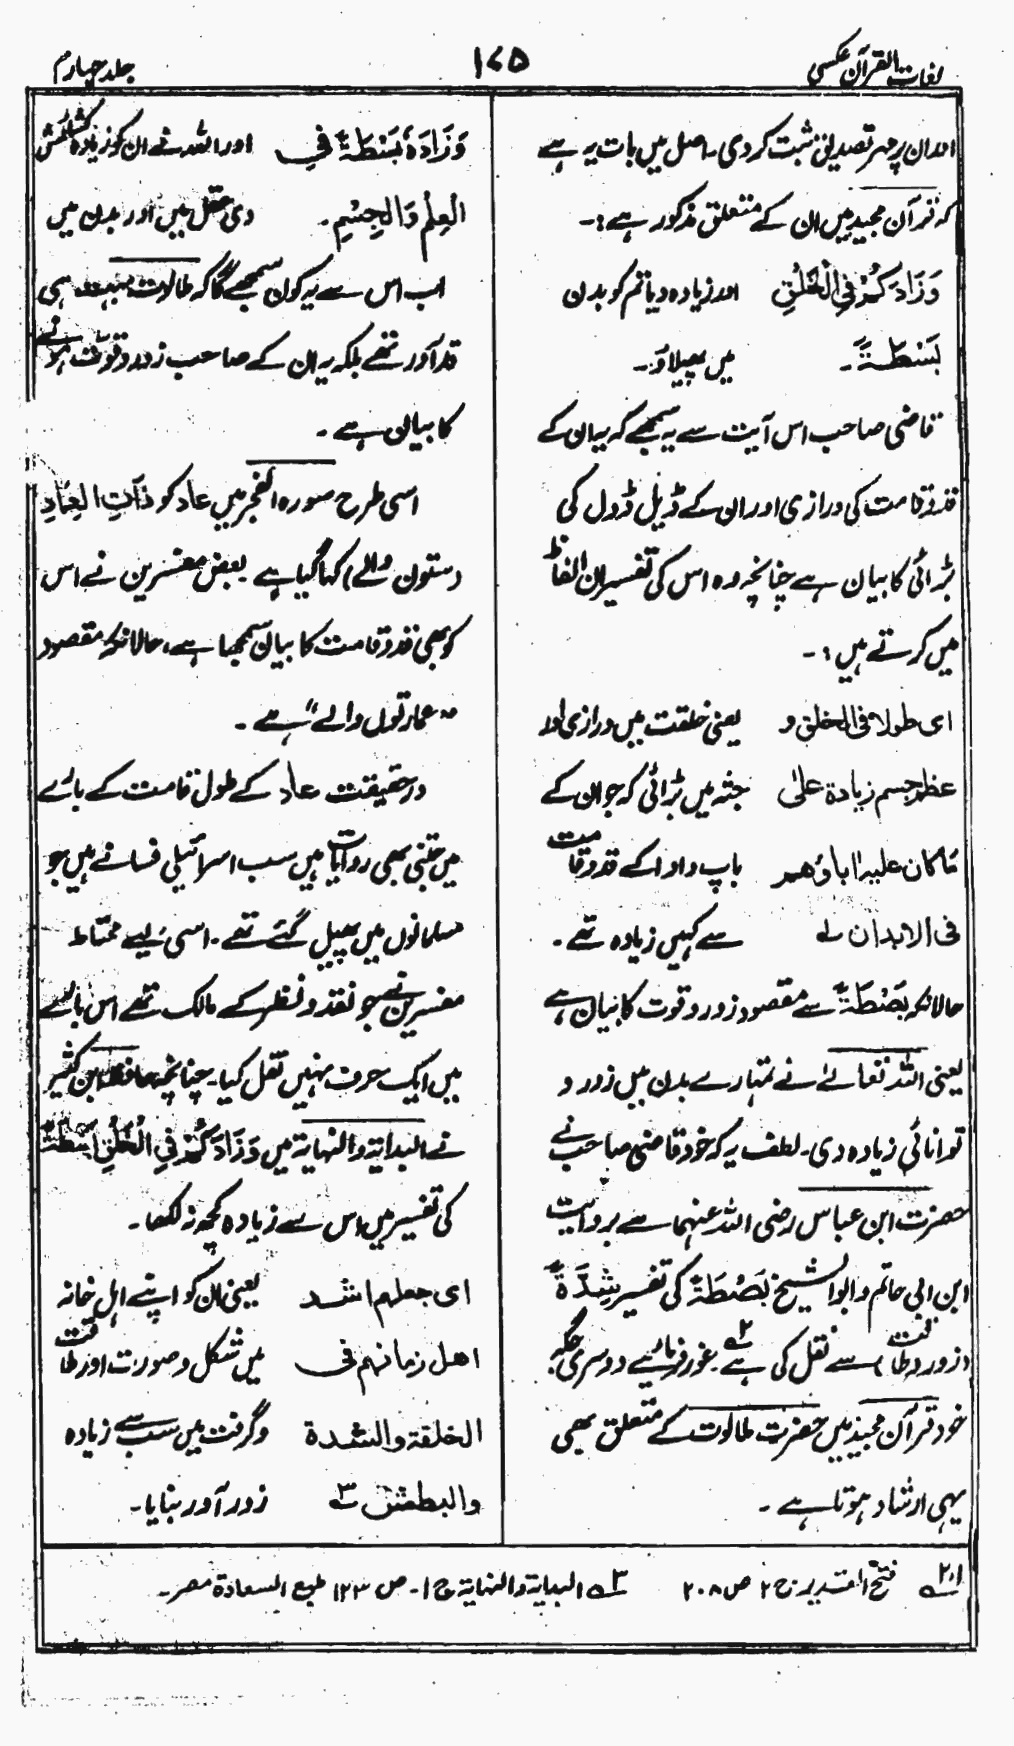 لغات القرآن عکسی
۱۷۵
جلد چہارم
اور ان پر مہر تصدیق ثبت کر دی۔ اصل میں بات یہ ہے
کہ قرآن مجید میں ان کے متعلق مذکور ہے:۔
وَزَادَكُمْ فِي الْخَلْقِ اور زیادہ دیا تم کو بدن
بَسْطَةً۔ میں پھیلاؤ۔
قاضی صاحب اس آیت سے یہ سمجھے کہ یہ ان کے
قد و قامت کی درازی اور ان کے ڈیل ڈول کی
بڑائی کا بیان ہے چنانچہ وہ اس کی تفسیر ان الفاظ
میں کرتے ہیں:۔
ای طولا فی الخلق و یعنی خلقت میں درازی اور
عظم جسم زیادة علیٰ جثہ میں بڑائی کہ جو ان کے
ما کان علیہ اٰباؤهم باپ دادا کے قد و قامت
فی الابدان لے سے کہیں زیادہ تھے۔
حالانکہ بَصْطَةً سے مقصود زور و قوت کا بیان ہے
یعنی اللہ تعالےٰ نے تمہارے بدن میں زور و
توانائی زیادہ دی۔ لطف یہ کہ خود قاضی صاحب نے
حضرت ابن عباس رضی اللہ عنہما سے بروایت
ابن ابی حاتم و ابو الشیخ بَصْطَةً کی تفسیر شِدَّةً
(زور و طاقت) سے نقل کی ہے ۲ے۔ غور فرمائیے دوسری جگہ
خود قرآن مجید میں حضرت طالوت کے متعلق بھی
یہی ارشاد ہوتا ہے۔
وَزَادَهُ بَسْطَةً فِي اور اللہ نے ان کو زیادہ کشائش
الْعِلْمِ وَالْجِسْمِ۔ دی عقل میں اور بدن میں
اب اس سے یہ کون سمجھے گا کہ طالوت بہت ہی
قد آور تھے بلکہ یہ ان کے صاحب زور و قوت ہونے
کا بیان ہے۔
اسی طرح سورہ الفجر میں عاد کو ذَاتِ الْعِمَادِ
(ستون والے) کہا گیا ہے بعض مفسرین نے اس
کو بھی قد و قامت کا بیان سمجھا ہے، حالانکہ مقصود
"عمارتوں والے" ہے۔
درحقیقت عاد کے طول قامت کے بارے
میں جتنی بھی روایات ہیں سب اسرائیلی فسانے ہیں جو
مسلمانوں میں پھیل گئے تھے۔ اسی لیے محتاط
مفسرین نے جو نقد و نظر کے مالک تھے اس بارے
میں ایک حرف نہیں نقل کیا۔ چنانچہ حافظ ابن کثیر
نے البدایۃ والنہایۃ میں وَزَادَكُمْ فِي الْخَلْقِ بَسْطَةً
کی تفسیر میں اس سے زیادہ کچھ نہ لکھا۔
ای جعلهم اشد یعنی ان کو اپنے اہل زمانہ
اهل زمانهم فی میں شکل و صورت اور طاقت
الخلقة والشدة و گرفت میں سب سے زیادہ
والبطش ۳ے زور آور بنایا۔
۱،۲ے فتح القدیر ج ۲ ص ۲۰۸ ۳ے البدایۃ والنہایۃ ج ۱۔ ص ۱۲۳ طبع السعادۃ مصر۔